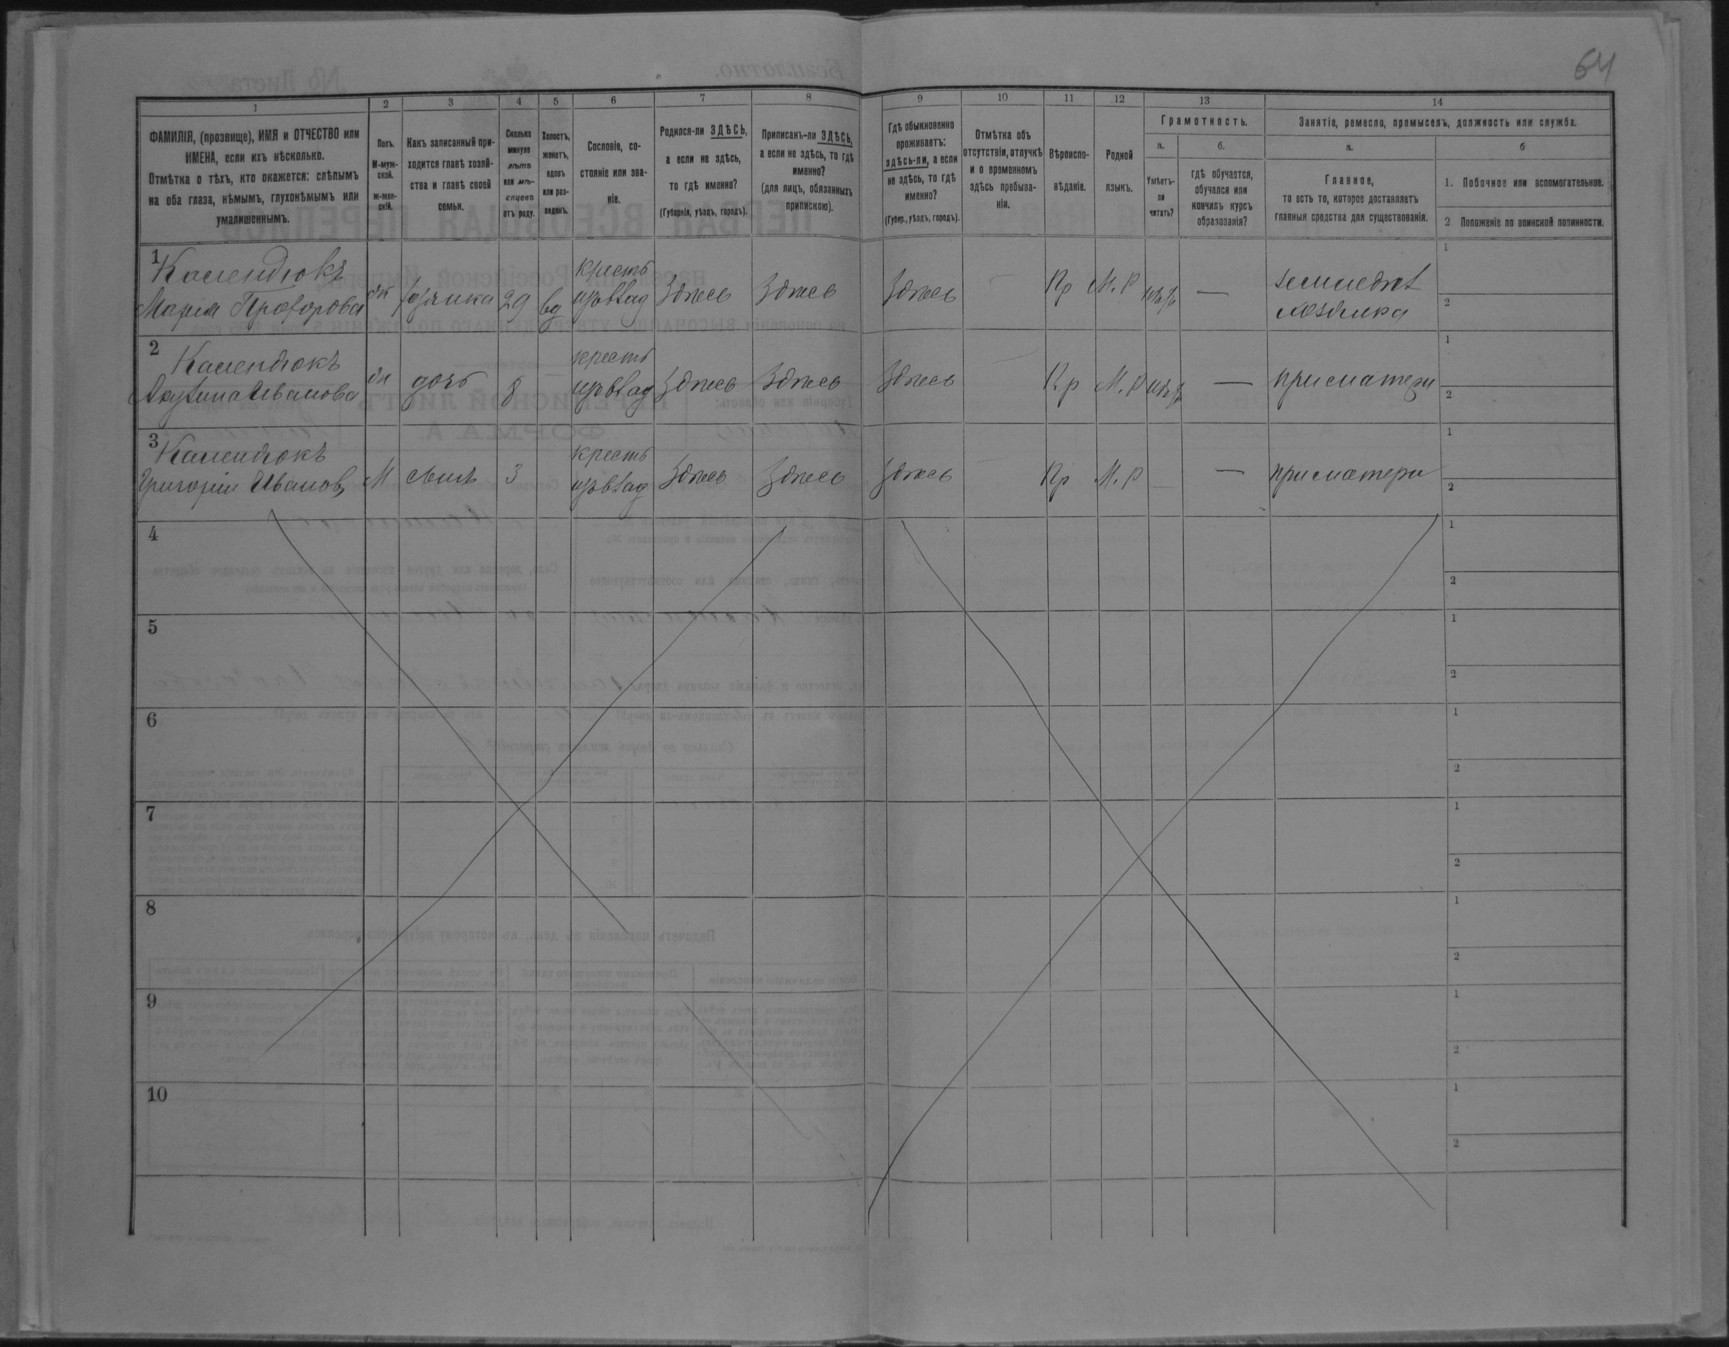 64
1 2 3 4 5 6 7 8 9 10 11 12 13 14
ФАМИЛІЯ, (прозвище), ИМЯ и ОТЧЕСТВО или
ИМЕНА, если ихъ нѣсколько.
Отмѣтка о тѣхъ, кто окажется: слѣпымъ
на оба глаза, нѣмымъ, глухонѣмымъ или
умалишеннымъ.
Полъ.
М-муж-
ской.
ж-жен-
скій.
Какъ записанный при-
ходится главѣ хозяй-
ства и главѣ своей
семьи.
Сколько
минуло
лѣтъ
или мѣ-
сяцевъ
отъ роду.
Холостъ,
женатъ,
вдовъ
или раз-
веденъ.
Сословіе, со-
стояніе или зва-
ніе.
Родился-ли ЗДѢСЬ,
а если не здѣсь,
то гдѣ именно?
(Губернія, уѣздъ, городъ).
Приписанъ-ли ЗДѢСЬ,
а если не здѣсь, то гдѣ
именно?
(для лицъ, обязанныхъ
припискою).
Гдѣ обыкновенно
проживаетъ:
здѣсь-ли, а если
не здѣсь, то гдѣ
именно?
(Губер., уѣздъ, городъ).
Отмѣтка объ
отсутствіи, отлучкѣ
и о временномъ
здѣсь пребыва-
ніи.
Вѣроиспо-
вѣданіе.
Родной
языкъ.
Грамотность.
а.
Умѣетъ-
ли
читать?
б.
гдѣ обучается,
обучался или
кончилъ курсъ
образованія?
Занятіе, ремесло, промыселъ, должность или служба.
а.
Главное,
то есть то, которое доставляетъ
главныя средства для существованія.
б
1. Побочное или вспомогательное.
2 Положеніе по воинской повинности.
1
Календюкъ
Марія Прохорова ж 29 вд
кресть
Здѣсь Здѣсь Здѣсь — Пр М.Р —
хозяйка
1
2
2
Календюкъ
Иванова ж дочь 8 —
кресть
Здѣсь Здѣсь Здѣсь — Пр М.Р — при матери
1
2
3
Календюкъ
Григорій Ивановъ М сынъ 3
кресть
Здѣсь Здѣсь Здѣсь Пр М.Р — — при матери
1
2
4
1
2
5
1
2
6
1
2
7
1
2
8
1
2
9
1
2
10
1
2